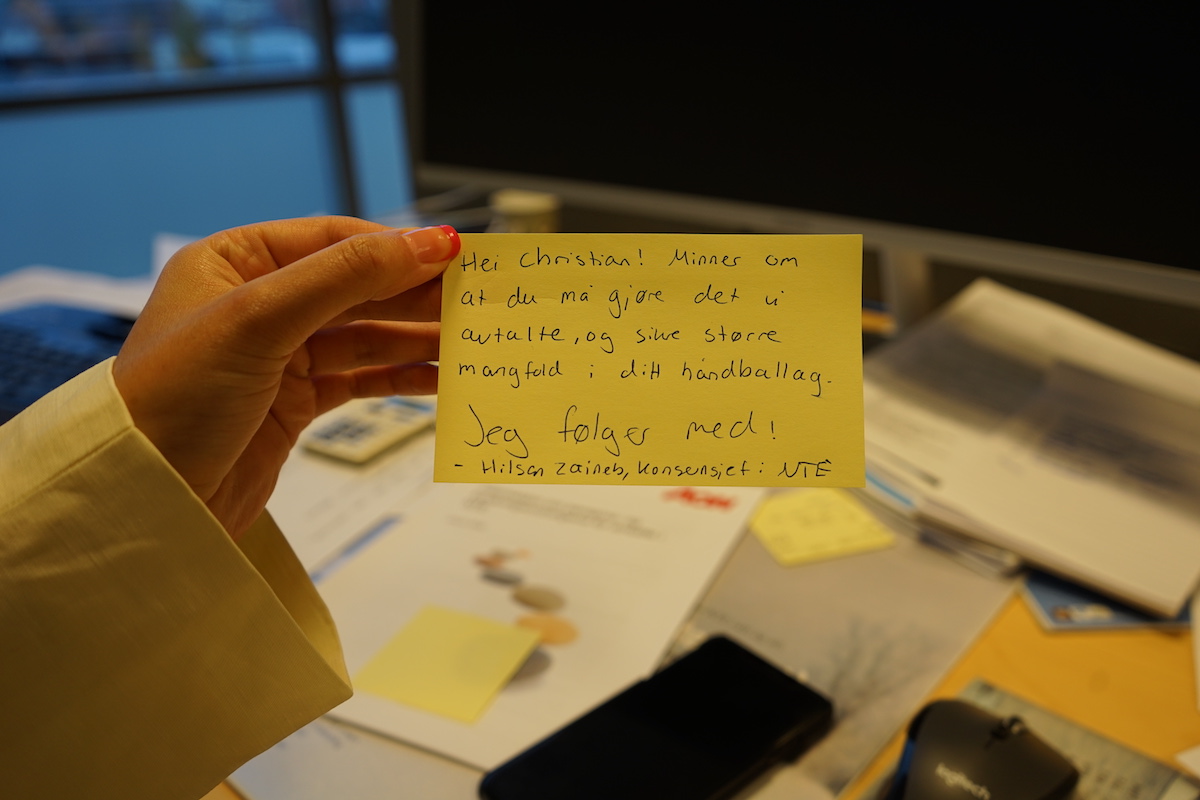 Hei Christian! Minner om
at du må gjøre det vi
avtalte, og sikre større
mangfold i ditt håndballag.
Jeg følger med!
- Hilsen Zaineb, konsernsjef i NTE
Aon
logitech